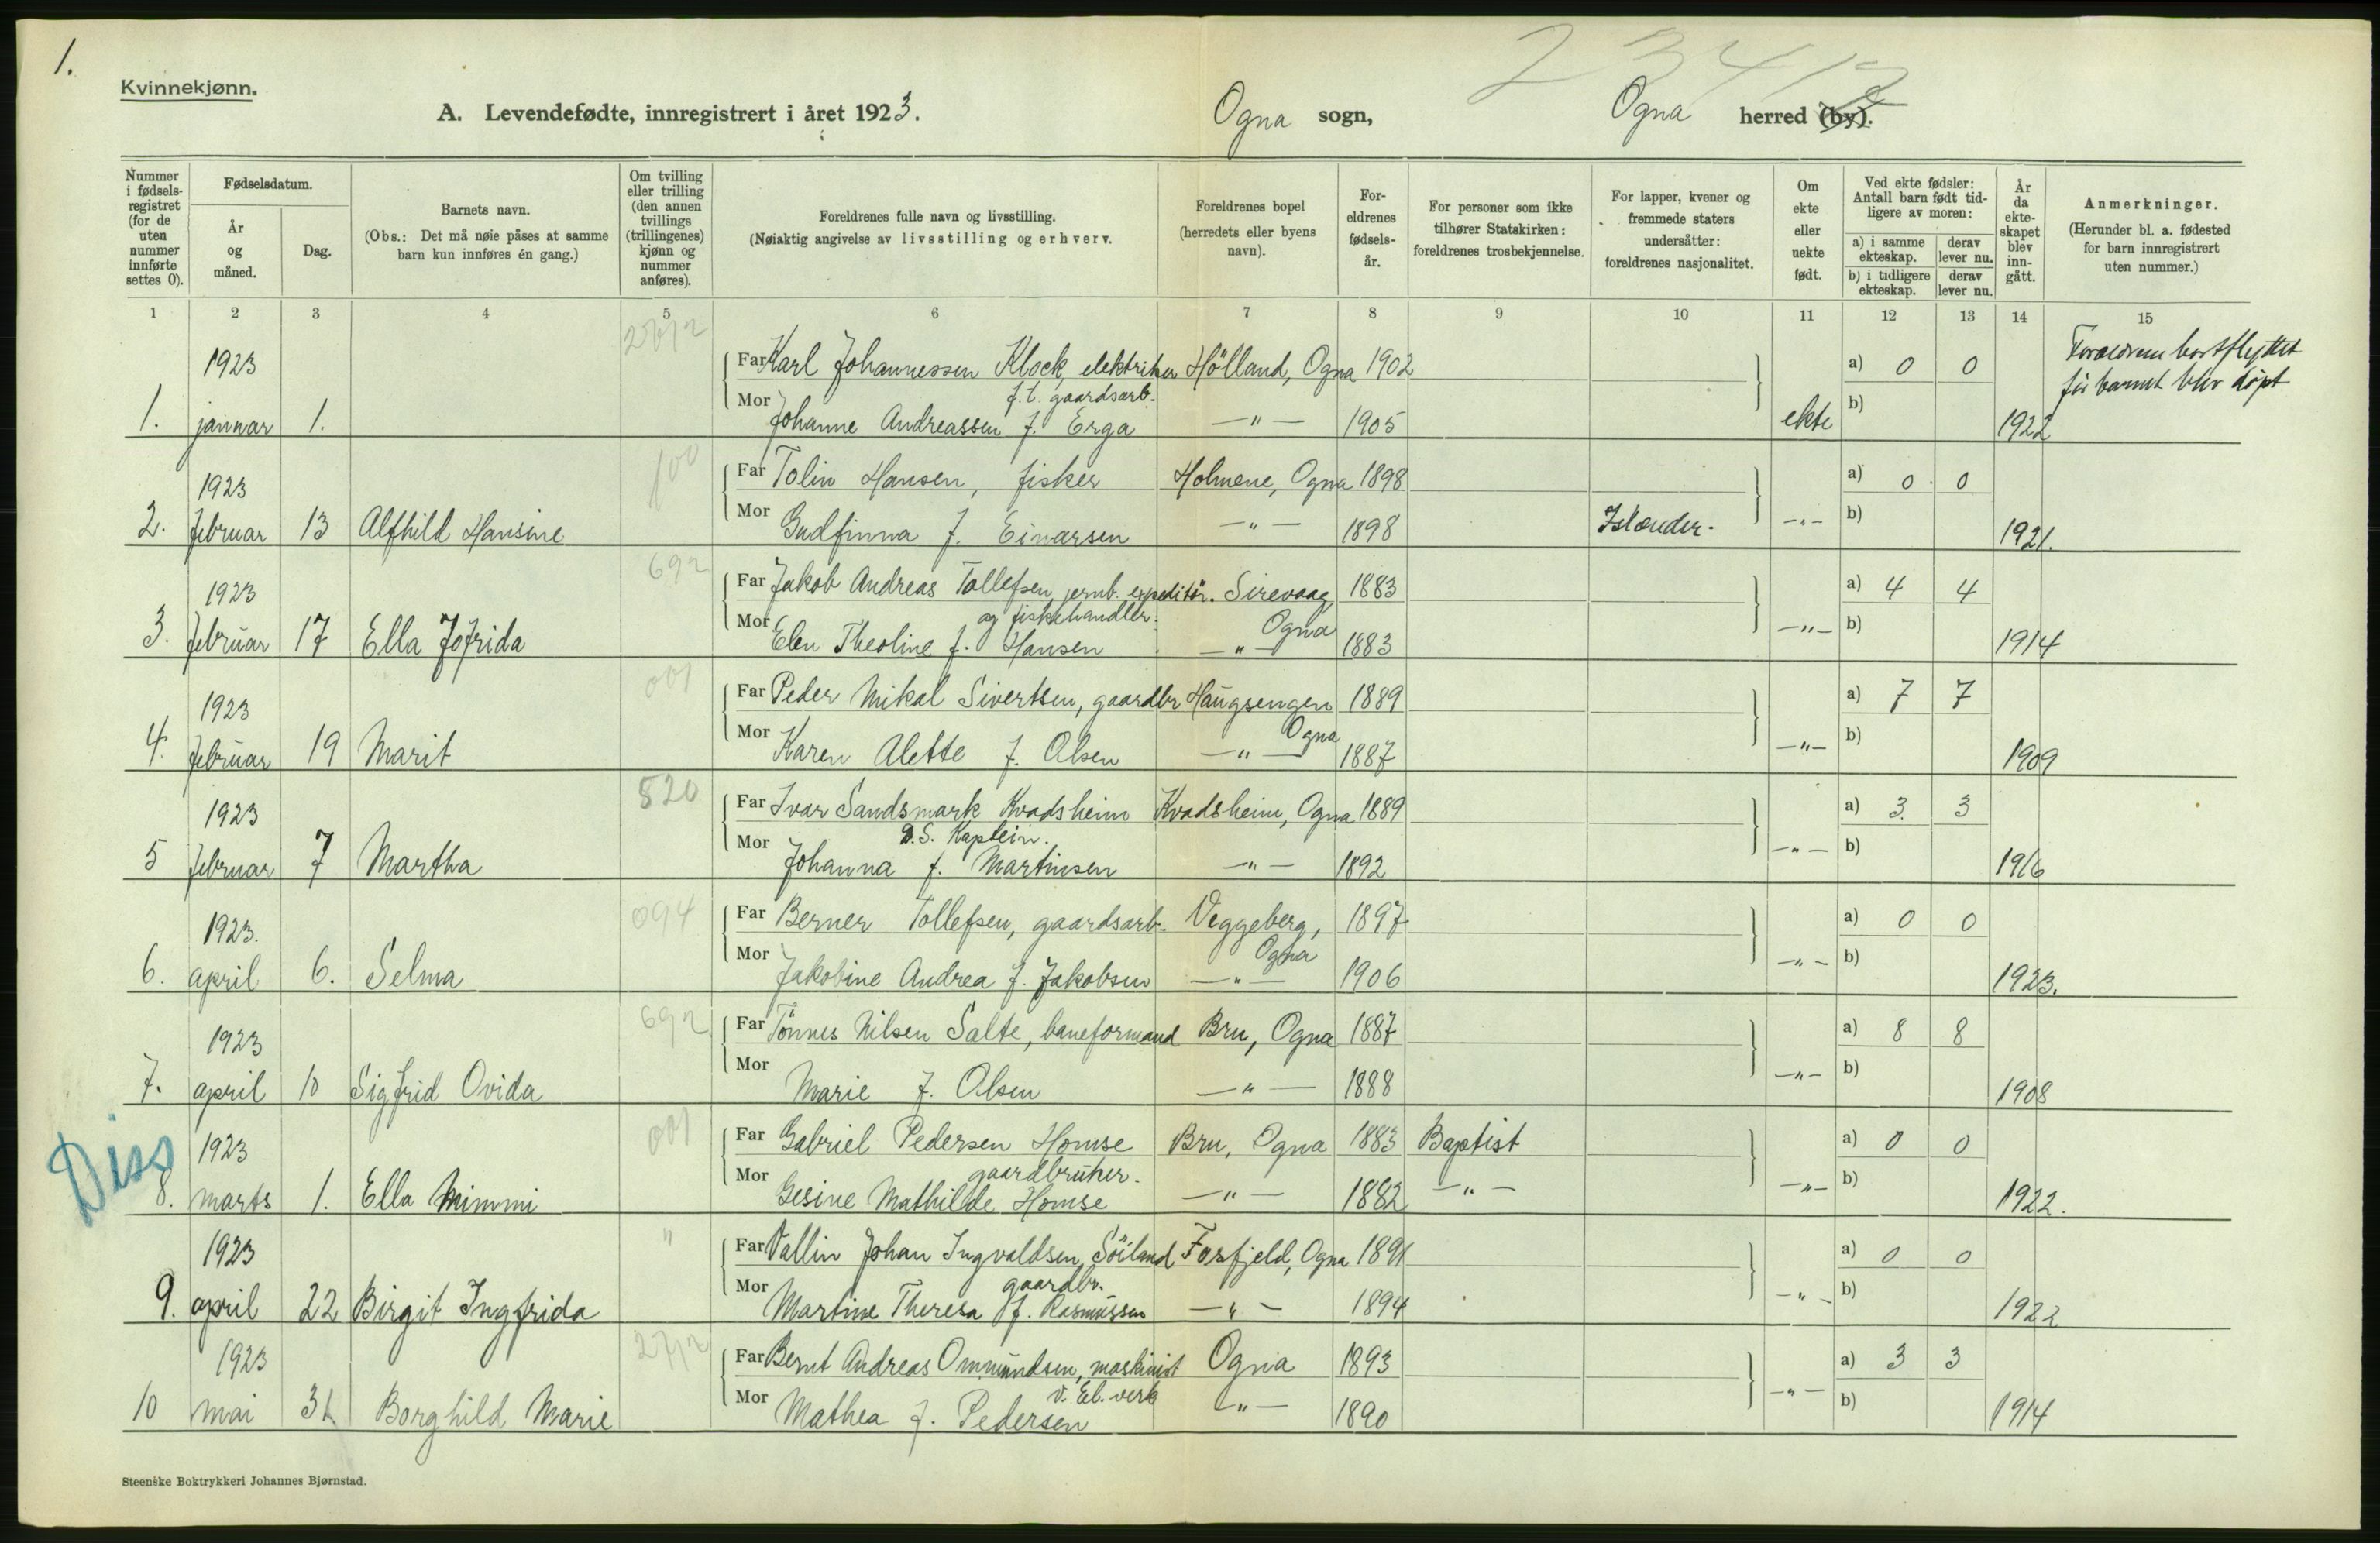 1.
Kvinnekjønn.
A. Levendefødte, innregistrert i året 1923.
Ogna sogn,
Ogna herred (by).
Nummer i fødsels-registret (for de uten nummer innførte settes 0).
Fødselsdatum.
År og måned.
Dag.
Barnets navn.
(Obs.: Det må nøie påses at samme barn kun innføres én gang.)
Om tvilling eller trilling (den annen tvillings (trillingenes) kjønn og nummer anføres).
Foreldrenes fulle navn og livsstilling.
(Nøiaktig angivelse av livsstilling og erhverv.
Foreldrenes bopel (herredets eller byens navn).
For-eldrenes fødsels-år.
For personer som ikke tilhører Statskirken: foreldrenes trosbekjennelse.
For lapper, kvener og fremmede staters undersåtter: foreldrenes nasjonalitet.
Om ekte eller uekte født.
Ved ekte fødsler: Antall barn født tid-ligere av moren:
a) i samme ekteskap.
derav lever nu.
b) i tidligere ekteskap.
derav lever nu.
År da ekte-skapet blev inn-gått.
Anmerkninger.
(Herunder bl. a. fødested for barn innregistrert uten nummer.)
1 2 3 4 5 6 7 8 9 10 11 12 13 14 15
1923 Far Karl Johannessen Klock, elektriker Hölland, Ogna 1902 a) 0 0 Forældrene bortflyttet
f.t. gaardsarb. før barnet blev döpt
1. januar 1. Mor Johanne Andreassen f. Erga —"— 1905 ekte b) 1922
100
1923 Far Tolin Hansen, fisker Holmene, Ogna 1898 a) 0 0
2. februar 13 Alfhild Hansine Mor Gudfinna f. Einarsen —"— 1898 Islænder. —"— b) 1921.
692
1923 Far Jakob Andreas Tollefsen, jernb. expeditör. Sirevaag 1883 a) 4 4
og fiskehandler. Ogna
3. februar 17 Ella Jofrida Mor Elen Theoline f. Hansen —"— 1883 —"— b) 1914
001
1923 Far Peder Mikal Sivertsen, gaardbr Haugsengen 1889 a) 7 7
Ogna
4. februar 19 Marit Mor Karen Alette f. Olsen —"— 1887 —"— b) 1909
520
1923 Far Ivar Sandsmark Kvadsheim Kvadsheim, Ogna 1889 a) 3. 3
D.S. Kaptein.
5 februar 7 Martha Mor Johanna f. Martinsen —"— 1892 —"— b) 1916
094
1923. Far Berner Tollefsen, gaardsarb. Veggeberg, 1897 a) 0 0
Ogna
6. april 6. Selma Mor Jakobine Andrea f. Jakobsen —"— 1906 —"— b) 1923.
692
1923 Far Tönnes Nilsen Salte, baneformand Bru, Ogna 1887 a) 8 8
7. april 10 Sigfrid Ovida Mor Marie f. Olsen —"— 1888 —"— b) 1908
Diss
001
1923 Far Gabriel Pedersen Homse Bru, Ogna 1883 Baptist a) 0 0
gaardbruker.
8. marts 1. Ella Mimmi Mor Gesine Mathilde Homse —"— 1882 —"— —"— b) 1922.
"
1923 Far Vallin Johan Ingvaldsen Söiland Fosfjeld, Ogna 1891 a) 0 0
gaardbr.
9. april 22 Birgit Ingfrida Mor Martine Theresa f. Rasmussen —"— 1894 —"— b) 1922
1923 Far Bernt Andreas Ommundsen, maskinist Ogna 1893 a) 3 3
v. El. verk
10 mai 31. Borghild Marie Mor Mathea f. Pedersen —"— 1890 —"— b) 1914
Steenske Boktrykkeri Johannes Bjørnstad.